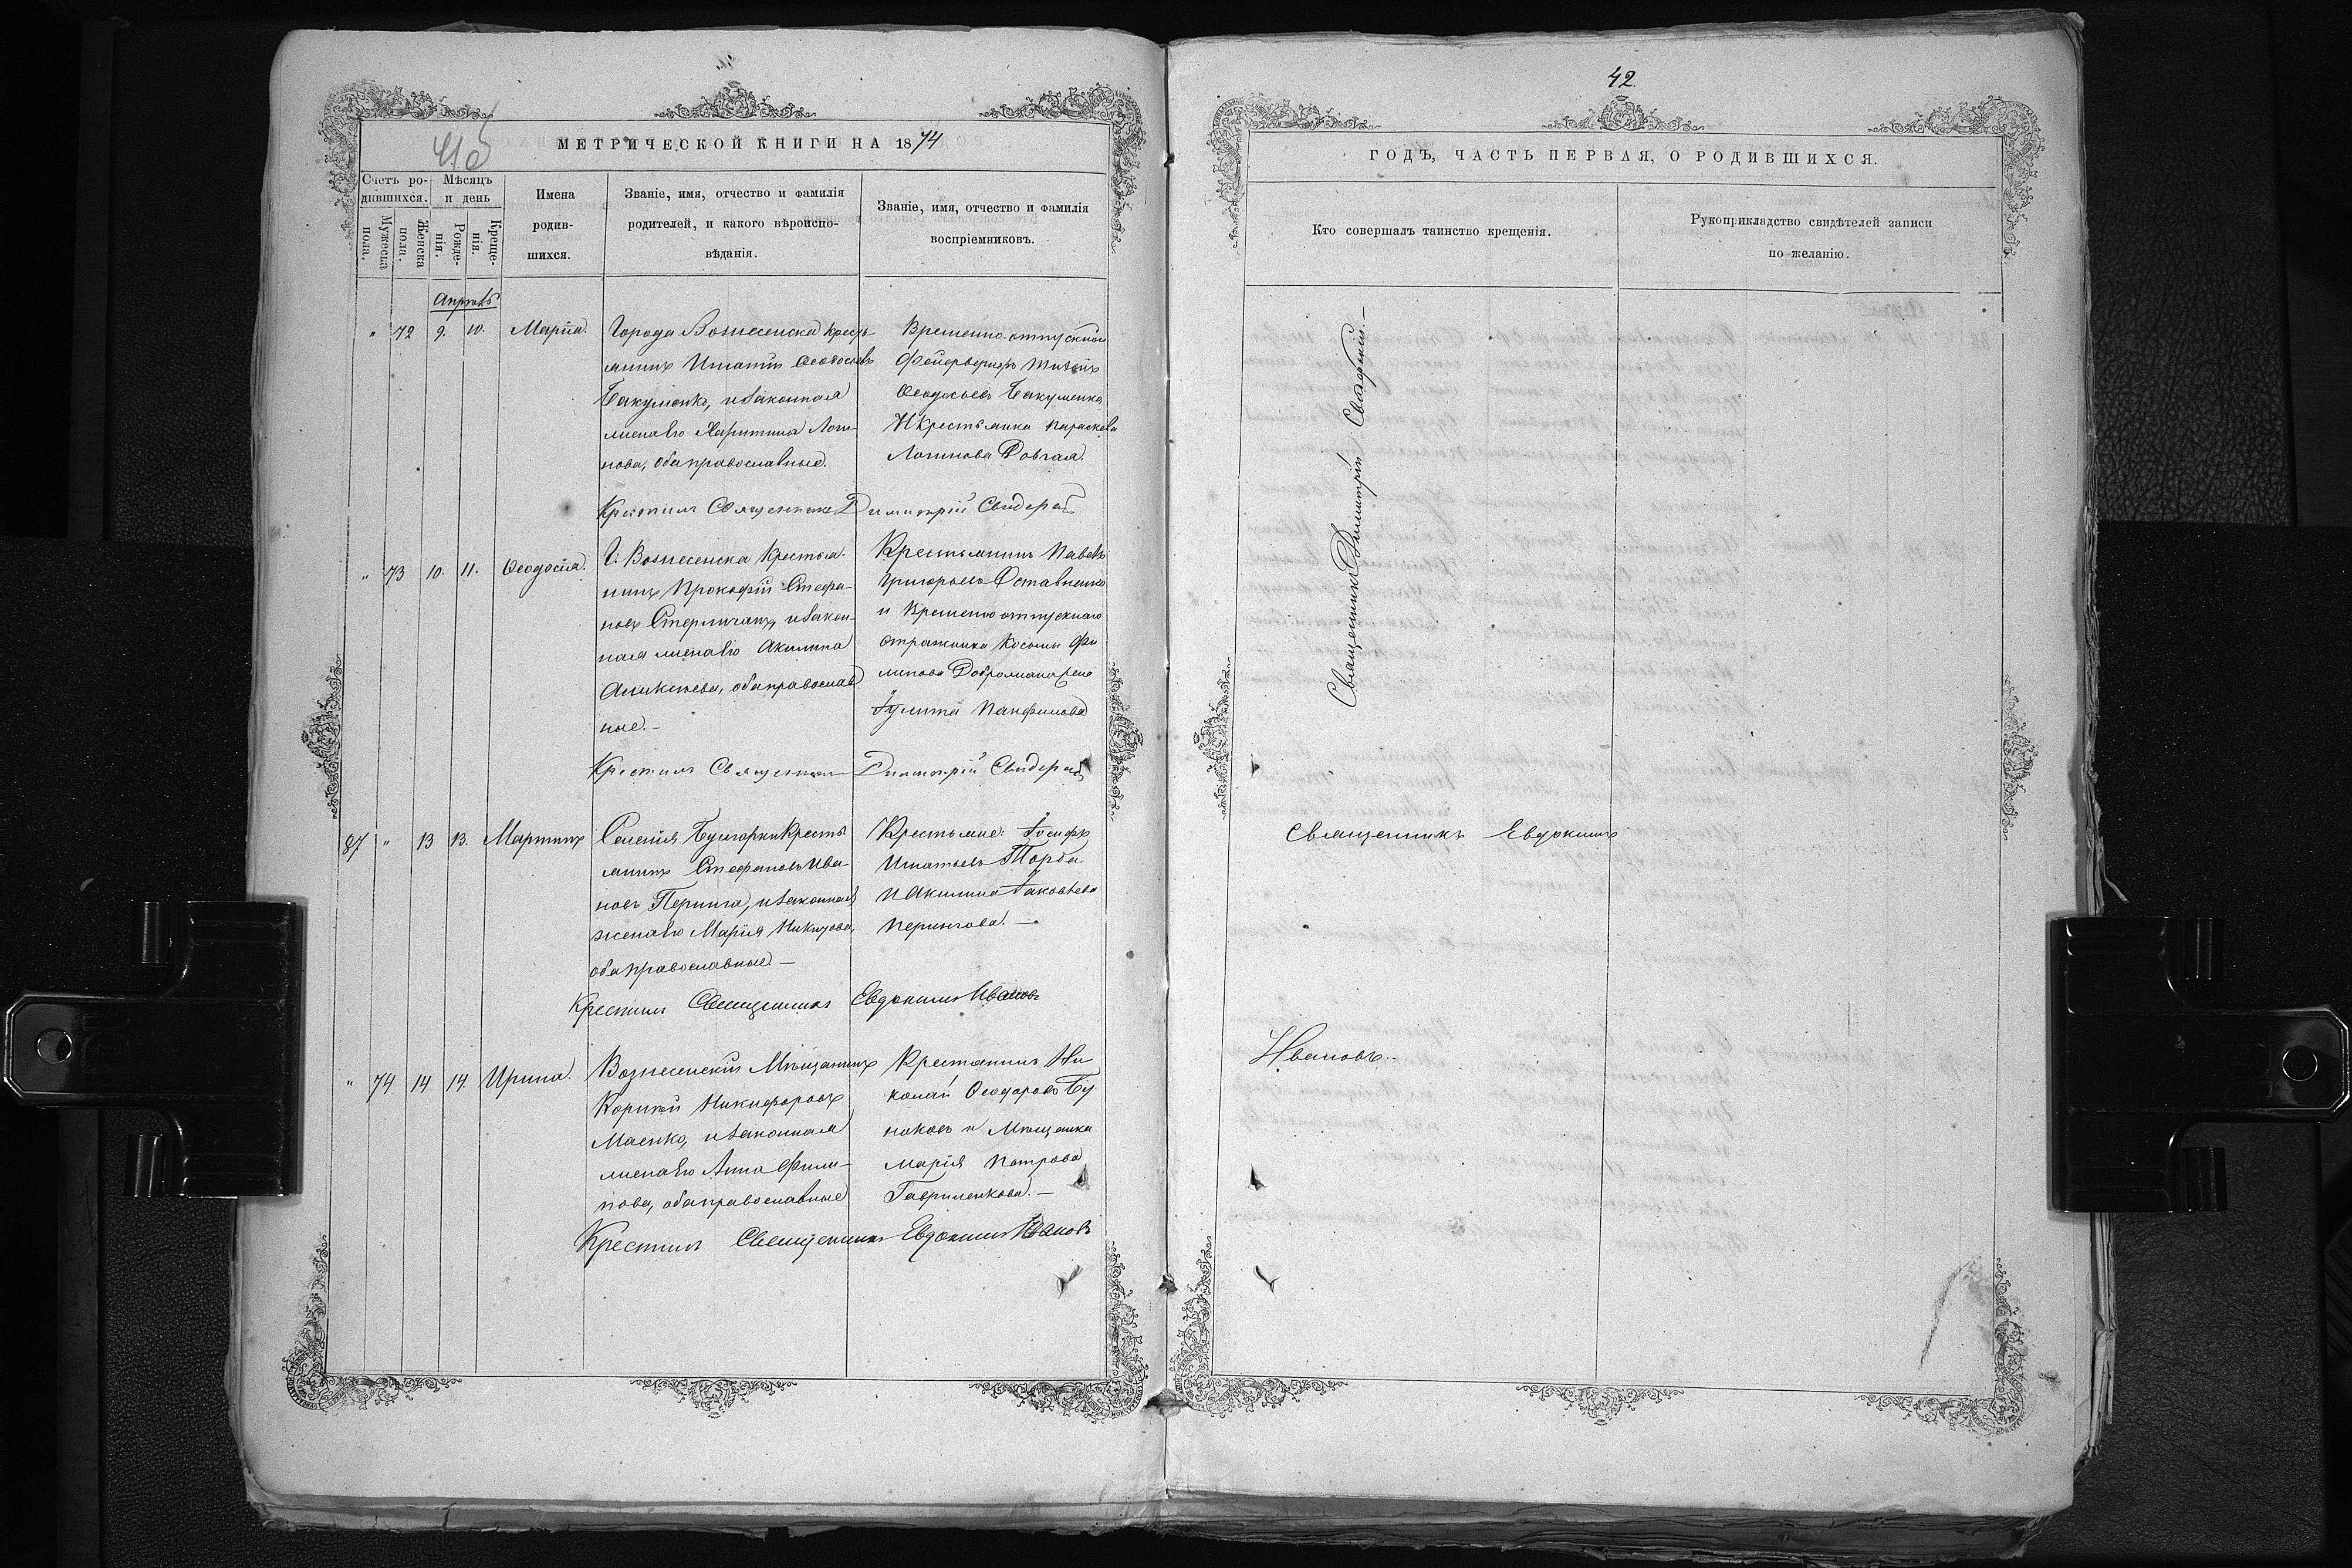 МЕТРИЧЕСКОЙ КНИГИ НА 1874
Счетъ ро-
дившихся.
Мужеска
пола.
Женска
пола.
Мѣсяцъ
и день
Рожде-
нія.
Креще-
нія.
Имена
родив-
шихся.
Званіе, имя, отчество и фамилія
родителей, и какого вѣроиспо-
вѣданія.
Званіе, имя, отчество и фамилія
воспріемниковъ.
Апрѣль
" 72 9. 10. Марія.
Города Вознесенска Кресть
янинъ Игнатій Ѳеодосіевъ
Бакуменко, и законная
жена его Харитина Логи-
нова, оба православные.
Временно-отпускной
Фейерверкеръ
Ѳеодосьевъ Бакуменко
И Крестьянка Параскева
Логинова Довгая.
Крестилъ Священникъ Димитрій
" 73 10. 11. Ѳеодосія.
Г. Вознесенска Крестья-
нинъ Прокофій Стефа-
новъ и закон-
ная жена его Акилина
Алексѣева, оба православ
ные.-
Крестьянинъ Павелъ
Григорьевъ Оставненко
и Временно отпускнаго
стражника Косьмы Фи
липова
Іулитта Панфилова
Крестилъ Священникъ Димитрій
87 " 13 13. Мартинъ
Селенія Булгарки Кресть
янинъ Стефановъ Ива-
новъ Перинга, и законная
жена его Марія Никитова,
оба православные.-
Крестьяне: Іосифъ
Игнатьевъ Торба
И Акилина Іаковлева
Перингова.-
Крестилъ Священникъ Евдокимъ Ивановъ
" 74 14 14. Ирина.
Вознесенскій Мѣщанинъ
Корнѣй Никифоровъ
Маенко, и законная
жена его Анна Фили-
пова, оба православные
Крестянинъ Ни
колай Ѳеодоровъ Бу
наковъ и Мѣщанка
Марія Петрова
Гавриленкова.-
Крестилъ Священникъ Евдокимъ Ивановъ
42.
ГОДЪ, ЧАСТЬ ПЕРВАЯ, О РОДИВШИХСЯ.
Кто совершалъ таинство крещенія.
Рукоприкладство свидѣтелей записи
по желанію.
Священникъ Димитрій
Священникъ Евдокимъ
Ивановъ.-